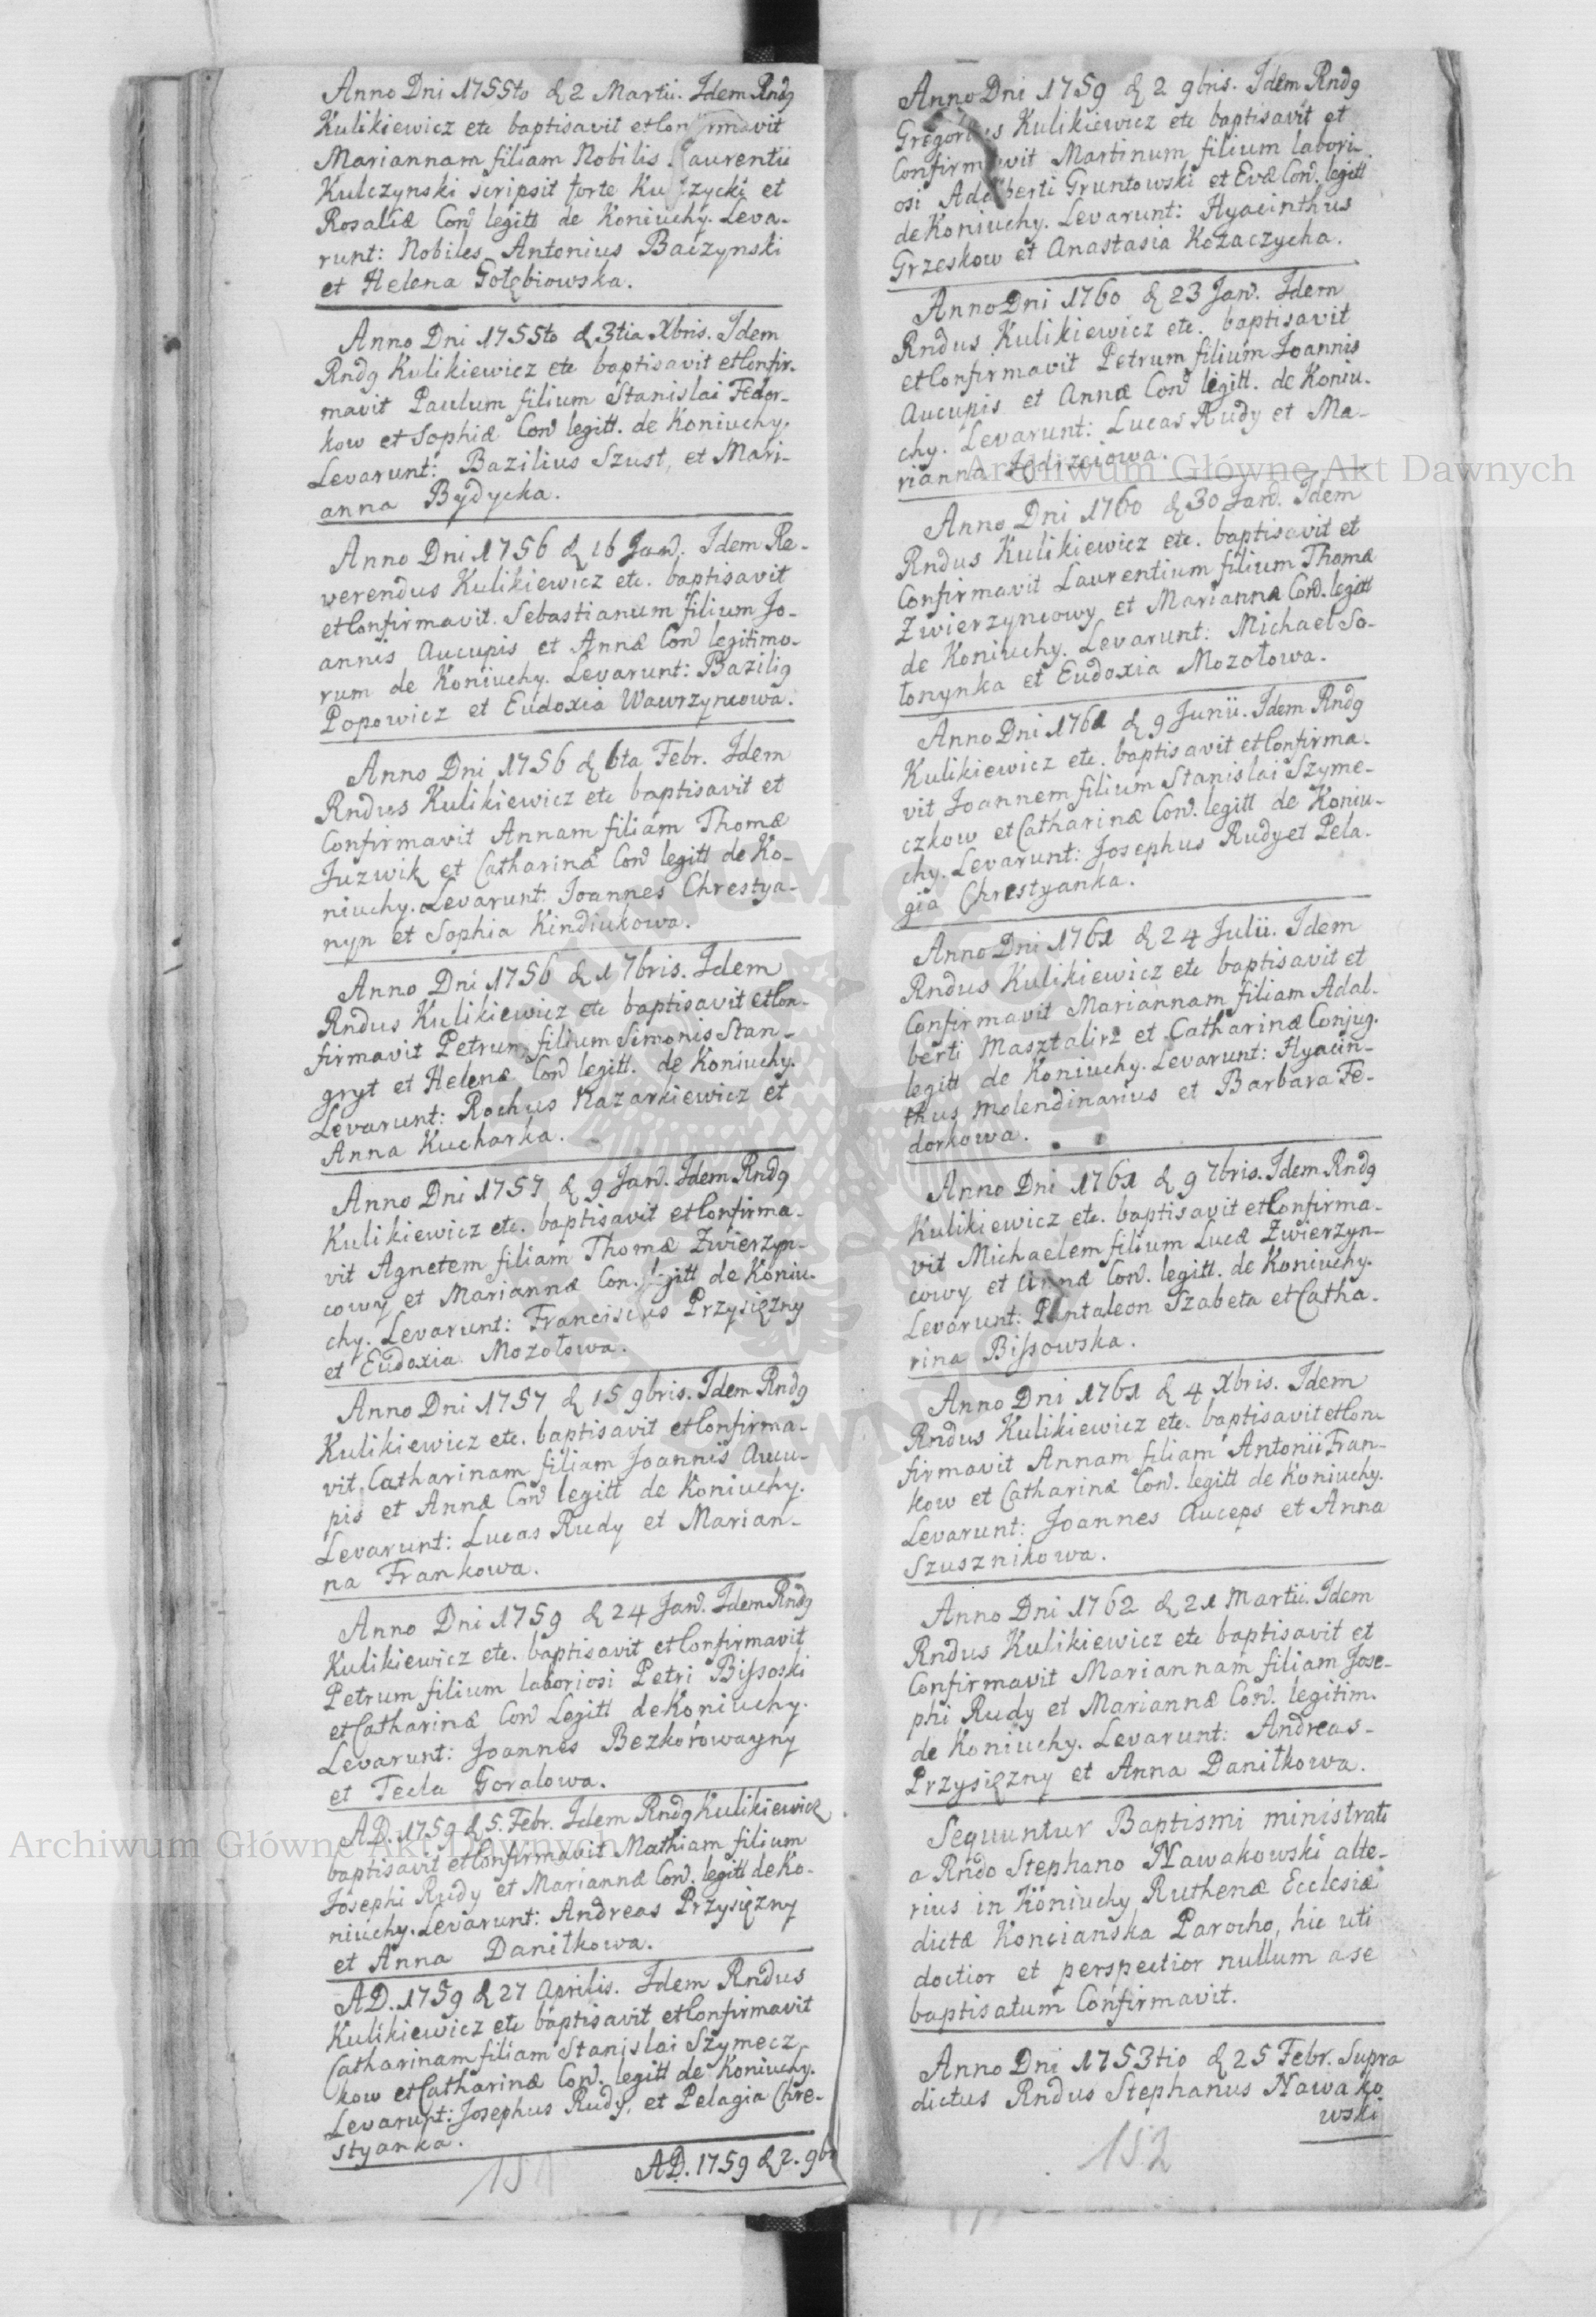 Anno Dni 1755to d 2 Martii. Idem Rndq
Kulikiewicz etc baptisavit et Confirmavit
Mariannam filiam Nobilis Laurentii
Kulczynski scripsit forte Kulszycki et
Rosaliæ Con legitt de Koniuchy. Leva-
runt: Nobiles Antonius Baczynski
et Helena Gołębiowska.
Anno Dni 1755to d 3tia Xbris. Idem
Rndq Kulikiewicz etc baptisavit et Confir-
mavit Paulum filium Stanislai Fedor-
kow et Sophiæ Con legitt. de Koniuchy.
Levarunt: Bazilius Szust, et Mari-
anna Bydycka.
Anno Dni 1756 d 16 Jan. Idem Re-
verendus Kulikiewicz etc. baptisavit
et Confirmavit. Sebastianum filium Jo-
annis Aucupis et Annæ Con legitimo-
rum de Koniuchy. Levarunt: Baziliq
Popowicz et Eudoxia Wawrzyncowa.
Anno Dni 1756 d 6ta Febr. Idem
Rndus Kulikiewicz etc baptisavit et
Confirmavit Annam filiam Thomæ
Juzwik et Catharinæ Con legitt de Ko-
niuchy. Levarunt: Joannes Chrestya-
nyn et Sophia Kindiukowa.
Anno Dni 1756 d 1 7bris. Idem
Rndus Kulikiewicz etc baptisavit et Con-
firmavit Petrum filium Simonis Stan-
gryt et Helenæ Con legitt. de Koniuchy.
Levarunt: Rochus Nazarkiewicz et
Anna Kucharka.
Anno Dni 1757 d 9 Jan. Idem Rndq
Kulikiewicz etc. baptisavit et Confirma-
vit Agnetem filiam Thomæ Zwierzyn-
cowy et Mariannæ Con. legitt de Koniu-
chy. Levarunt: Franciscus Przysięzny
et Eudoxia Mozołowa.
Anno Dni 1757 d 15 9bris. Idem Rndq
Kulikiewicz etc. baptisavit et Confirma-
vit Catharinam filiam Joannis Aucu-
pis et Annæ Con legitt de Koniuchy.
Levarunt: Lucas Rudy et Marian-
na Frankowa.
Anno Dni 1759 d 24 Jan. Idem Rndq
Kulikiewicz etc. baptisavit et Confirmavit
Petrum filium laboriosi Petri Bissoski
et Catharinæ Con Legitt de Koniuchy.
Levarunt: Joannes Bezkorowayny
et Tecla Goralowa.
AD. 1759 d 5. Febr. Idem Rndq Kulikiewicz
baptisavit et Confirmavit Mathiam filium
Josephi Rudy et Mariannæ Con. legitt de Ko-
niuchy. Levarunt: Andreas Przysięzny
et Anna Daniłkowa.
AD. 1759 d 27 Aprilis. Idem Rndus
Kulikiewicz etc baptisavit et Confirmavit
Catharinam filiam Stanislai Szymecz
kow et Catharinæ Con. legitt de Koniuchy.
Levarunt: Josephus Rudy, et Pelagia Chre-
styanka.
AD. 1759 d 2. 9b
151
Anno Dni 1759 d 2 9bris. Idem Rndq
Gregorius Kulikiewicz etc baptisavit et
Confirmavit Martinum filium labori-
osi Adalberti Gruntowski et Evæ Con. legitt
de Koniuchy. Levarunt: Hyacinthus
Grzeskow et Anastasia Kozaczycha.
Anno Dni 1760 d 23 Jan. Idem
Rndus Kulikiewicz etc. baptisavit
et Confirmavit Petrum filium Joannis
Aucupis et Annæ Con legitt. de Koniu-
chy. Levarunt: Lucas Rudy et Ma-
rianna Jędrzeiowa.
Anno Dni 1760 d 30 Jan. Idem
Rndus Kulikiewicz etc. baptisavit et
Confirmavit Laurentium filium Thomæ
Zwierzyncowy et Mariannæ Con. legitt
de Koniuchy. Levarunt: Michael So-
łonynka et Eudoxia Mozołowa.
Anno Dni 1761 d 9 Junii. Idem Rndq
Kulikiewicz etc. baptisavit et Confirma-
vit Joannem filium Stanislai Szyme-
czkow et Catharinæ Con. legitt de Koniu-
chy. Levarunt: Josephus Rudy et Pela-
gia Chrestyanka.
Anno Dni 1761 d 24 Julii. Idem
Rndus Kulikiewicz etc baptisavit et
Confirmavit Mariannam filiam Adal-
berti Masztalirz et Catharinæ Conjug.
legitt de Koniuchy. Levarunt: Hyacin-
thus Molendinarius et Barbara Fe-
dorkowa.
Anno Dni 1761 d 9 7bris. Idem Rndq
Kulikiewicz etc. baptisavit et Confirma-
vit Michaelem filium Lucæ Zwierzyn-
cowy et Annæ Con. legitt. de Koniuchy.
Levarunt: Pantaleon Szabeta et Catha-
rina Bissowska.
Anno Dni 1761 d 4 Xbris. Idem
Rndus Kulikiewicz etc. baptisavit et Con-
firmavit Annam filiam Antonii Fran-
kow et Catharinæ Con. legitt de Koniuchy.
Levarunt: Joannes Auceps et Anna
Szusznikowa.
Anno Dni 1762 d 21 Martii. Idem
Rndus Kulikiewicz etc baptisavit et
Confirmavit Mariannam filiam Jose-
phi Rudy et Mariannæ Con. legitim.
de Koniuchy. Levarunt: Andreas-
Przysięzny et Anna Daniłkowa.
Sequuntur Baptismi ministrati
a Rndo Stephano Nawakowski alte-
rius in Koniuchy Ruthenæ Ecclesiæ
dictæ Koncianska Parocho, hic uti
doctior et perspectior nullum a se
baptisatum Confirmavit.
Anno Dni 1753tio d 25 Febr. Supra
dictus Rndus Stephanus Nawako
wski
152
Archiwum Główne Akt Dawnych
Archiwum Główne Akt Dawnych